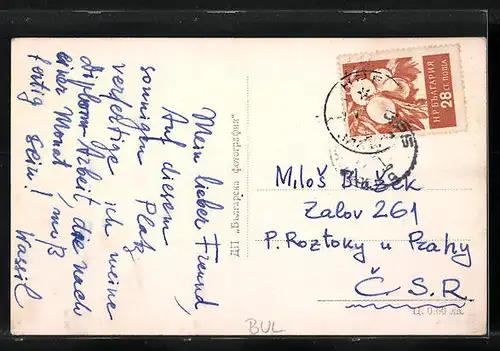 Mein lieber Freund,
Auf diesem
sonnigen Platz
verfertige ich meine
diplom-Arbeit die nach
einer Monat, muß
fertig sein!
Vassil
ДП "Българска фотография"
НР БЪЛГАРИЯ
28 СТ. ПОЩА
Miloš Blažek
Zalov 261
p. Roztoky u Prahy
Č.S.R.
Ц. 0.66 лв.
BUL